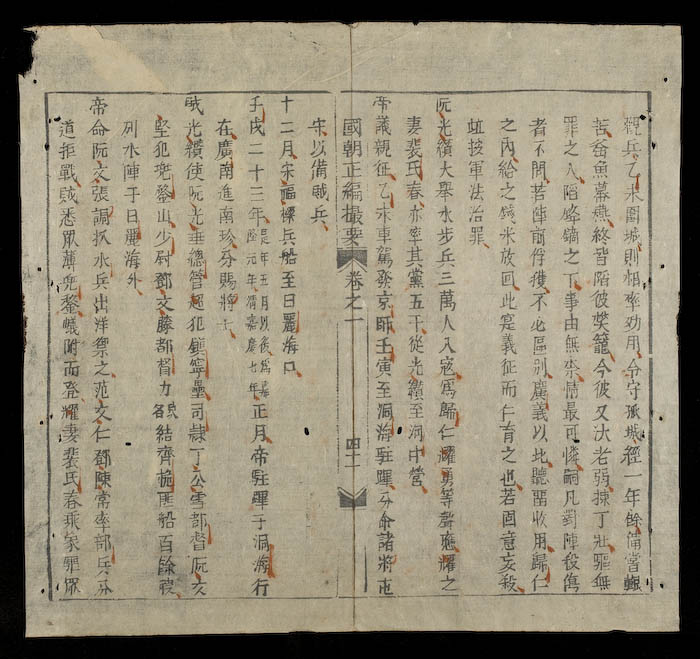 觀兵乙未圍城則相率効用今守孤城經一年餘備嘗艱
苦畚魚幕燕終皆陷彼樊籠今彼又汰老弱揀丁壯無
罪之人陷鋒鏑之下事由無柰情最可憐嗣凡對陣殺傷
者不問若陣前俘獲不必區別廣義以北聽留收用歸仁
之內給之錢米放回此寔義征而仁育之也若固意妄殺
並按軍法治罪
阮光纘大舉水步兵三萬人入寇為歸仁耀勇等聲應耀之
妻裴氏春亦率其黨五千從光纘至洞中營
帝議親征乙未車駕發京師壬寅至洞海駐蹕分命諸將屯
國朝正編撮要 卷之一 四十一
宋以備賊兵
十二月宋福樑兵船至日麗海口
壬戌二十三年是年五月以後為嘉隆元年清嘉慶七年正月帝駐蹕于洞海行
在廣南進南珍分賜將士
賊光纘使阮光垂總管超犯鎮寧壘司隸丁公雪都督阮文
堅犯兜鍪山少尉鄧文藤都督力結齊桅匪船百餘艘
列水陣于日麗海外
帝命阮文張扒水兵出洋禦之范文仁鄧陳常率部兵分
道拒戰賊悉眾薄兜鍪蟻附而登耀妻裴氏春乘象眾